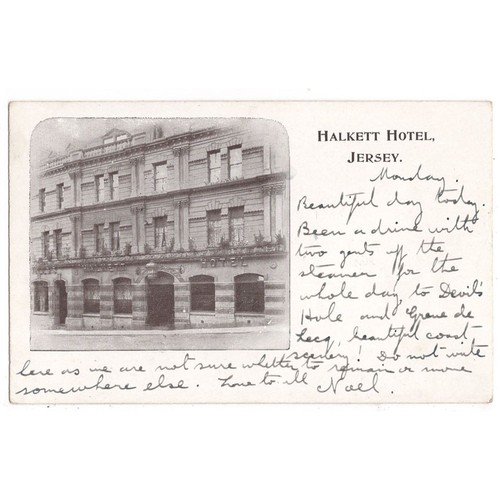 HALKETT HOTEL,
JERSEY.
HOTEL
Monday.
Beautiful day today.
Been a drive with
two gents off the
steamer for the
whole day, to Devil's
Hole and Greve de
Lecq, beautiful coast
scenery! Do not write
here as we are not sure whether to remain or move
somewhere else. Love to all
Noel.